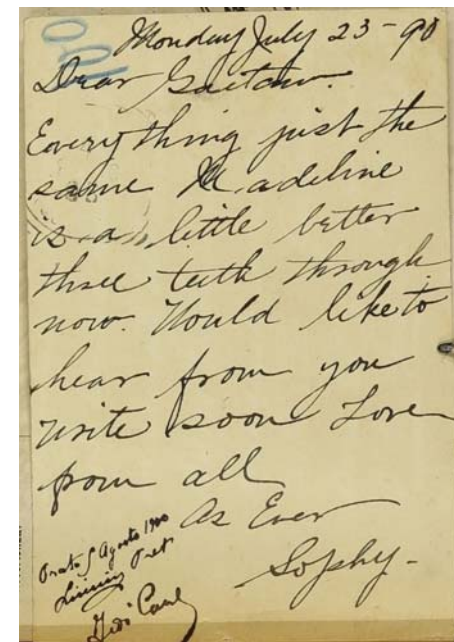 Monday July 23 - 90
Dear Gaetano.
Everything just the
same Madeline
is a little better
three teeth through
now. Would like to
hear from you
write soon Love
from all
As Ever
Sophy-
Prato 5 Agosto 1900